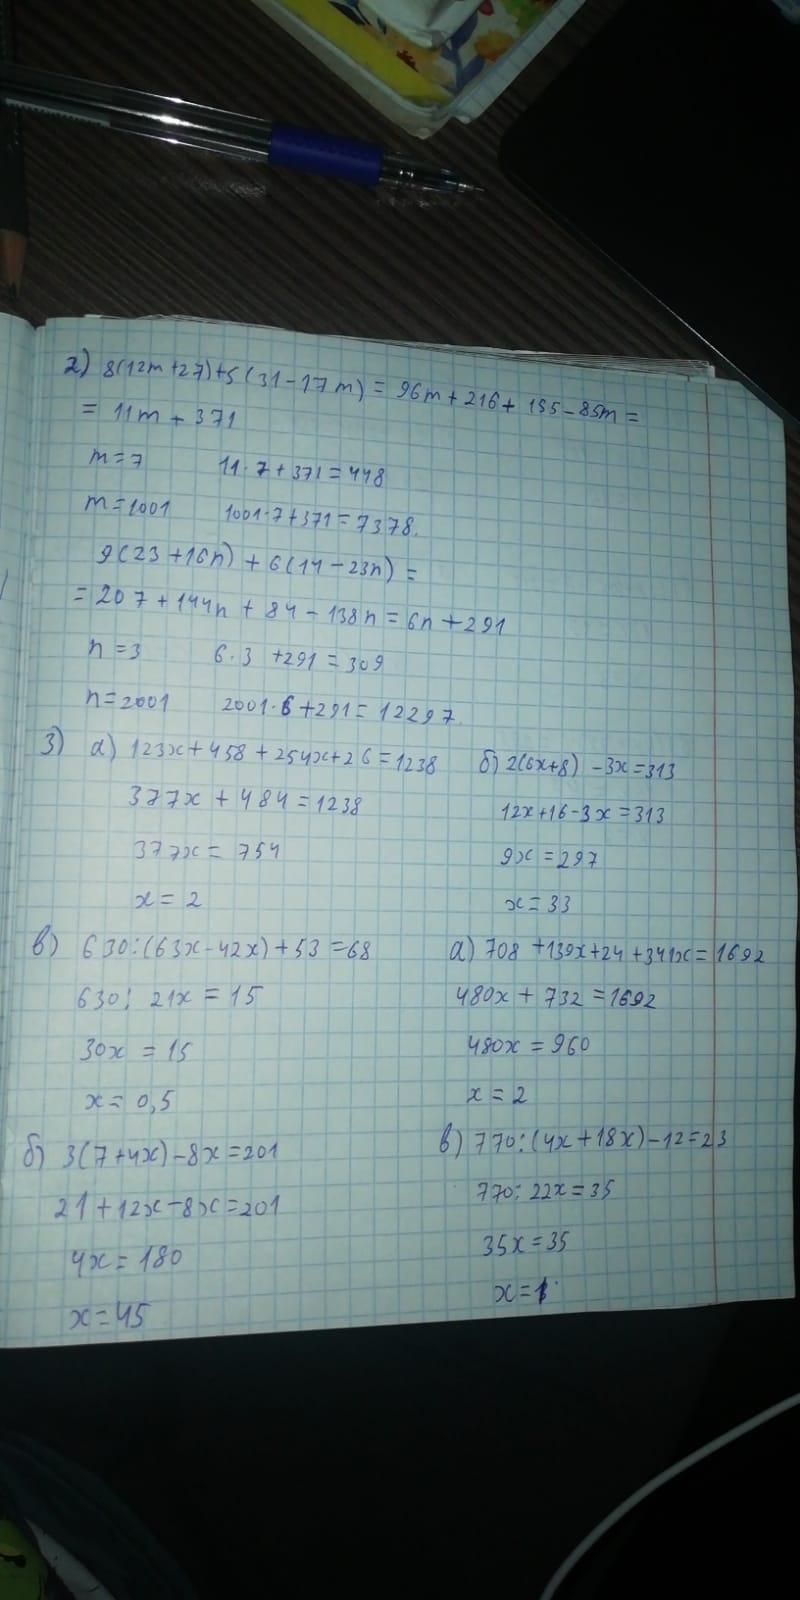 2) 8(12m+27)+5(31-17m) = 96m+216+155-85m=
= 11m + 371
m=7 11·7+371=448
m=1001 1001·7+371=7378.
9(23+16n) + 6(14-23n) =
= 207+144n + 84 - 138n = 6n +291
n=3 6·3 +291=309
n=2001 2001·6+291=12297.
3) а) 123x+458+254x+26=1238
377x + 484=1238
377x= 754
x= 2
б) 2(6x+8) -3x=313
12x+16-3x=313
9x=297
x=33
в) 630:(63x-42x)+53=68
630: 21x = 15
30x = 15
x= 0,5
а) 708 +139x+24 +341x=1692
480x+ 732=1692
480x=960
x=2
б) 3(7+4x)-8x=201
21+12x-8x=201
4x=180
x=45
в) 770:(4x+18x)-12=23
770: 22x=35
35x=35
x=1.